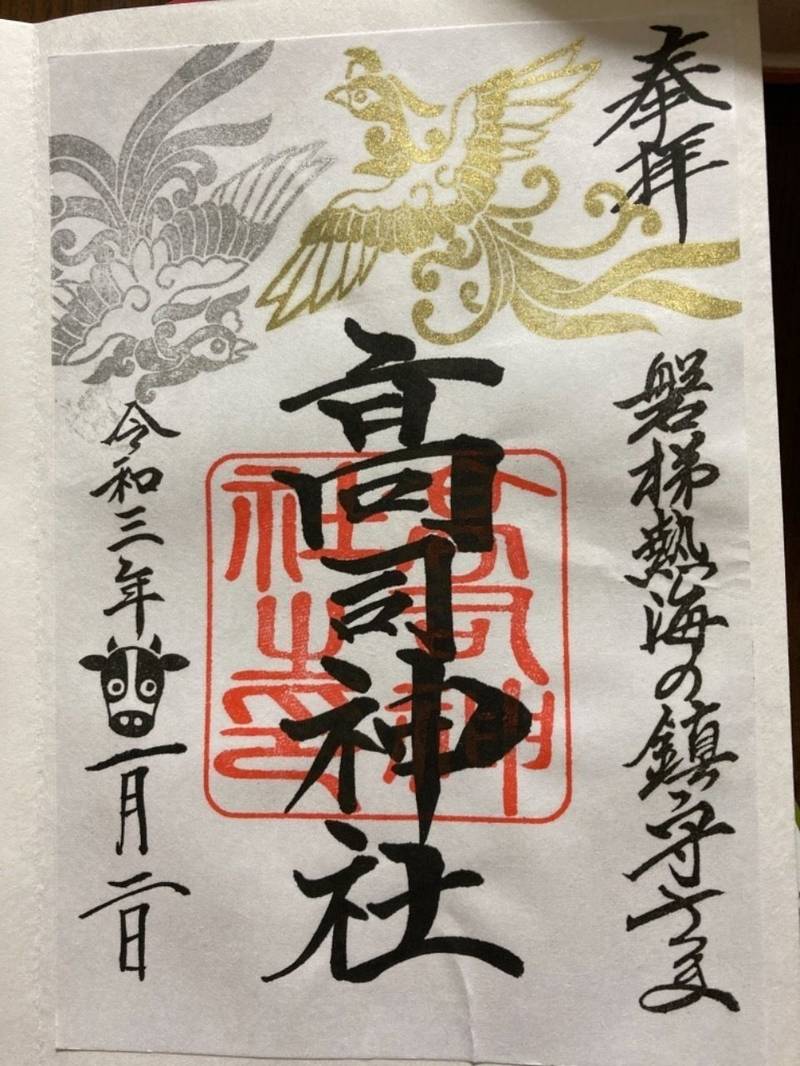 奉拝
磐梯熱海の鎮守さま
高司神社
高司神
社之印
令和三年
一月二日